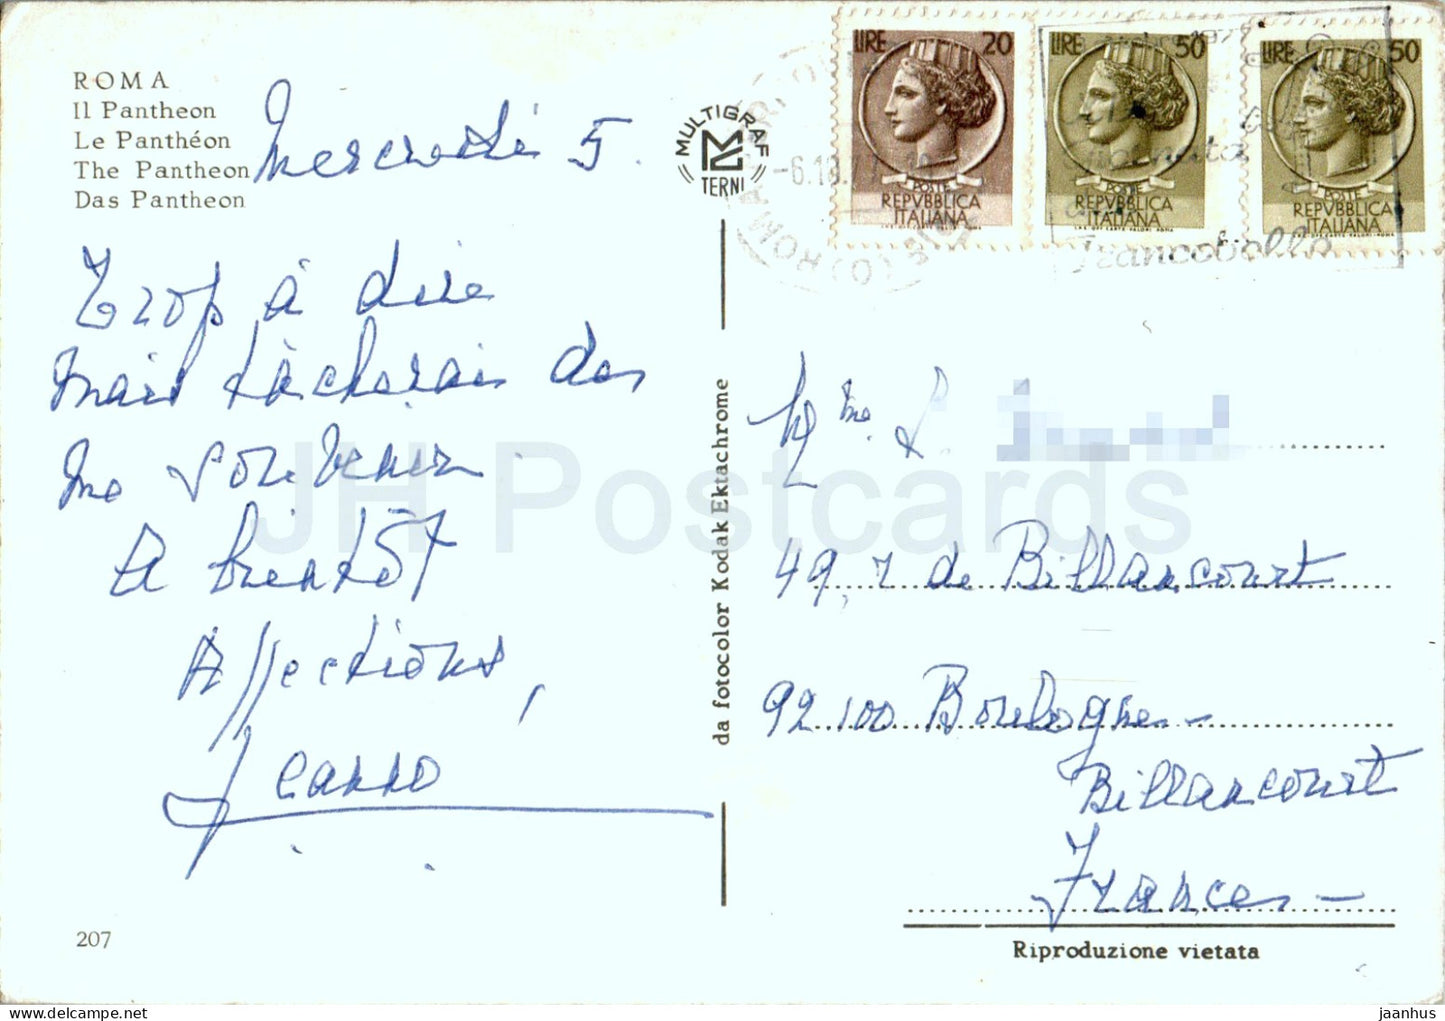 ROMA
Il Pantheon
Le Panthéon
The Pantheon
Das Pantheon
Mercredi 5.
Trop à dire
mais tâcherai de
me souvenir.
A bientôt
Affections,
207
MULTIGRAF
TERNI
da fotocolor Kodak Ektachrome
LIRE 20
POSTE
REPVBBLICA
ITALIANA
LIRE 50
POSTE
REPVBBLICA
ITALIANA
LIRE 50
POSTE
REPVBBLICA
ITALIANA
-6.10.77
francobollo
Mme. L.
49, r de Billancourt
92100 Boulogne-
Billancourt
France-
Riproduzione vietata
JH Postcards
jaanhus